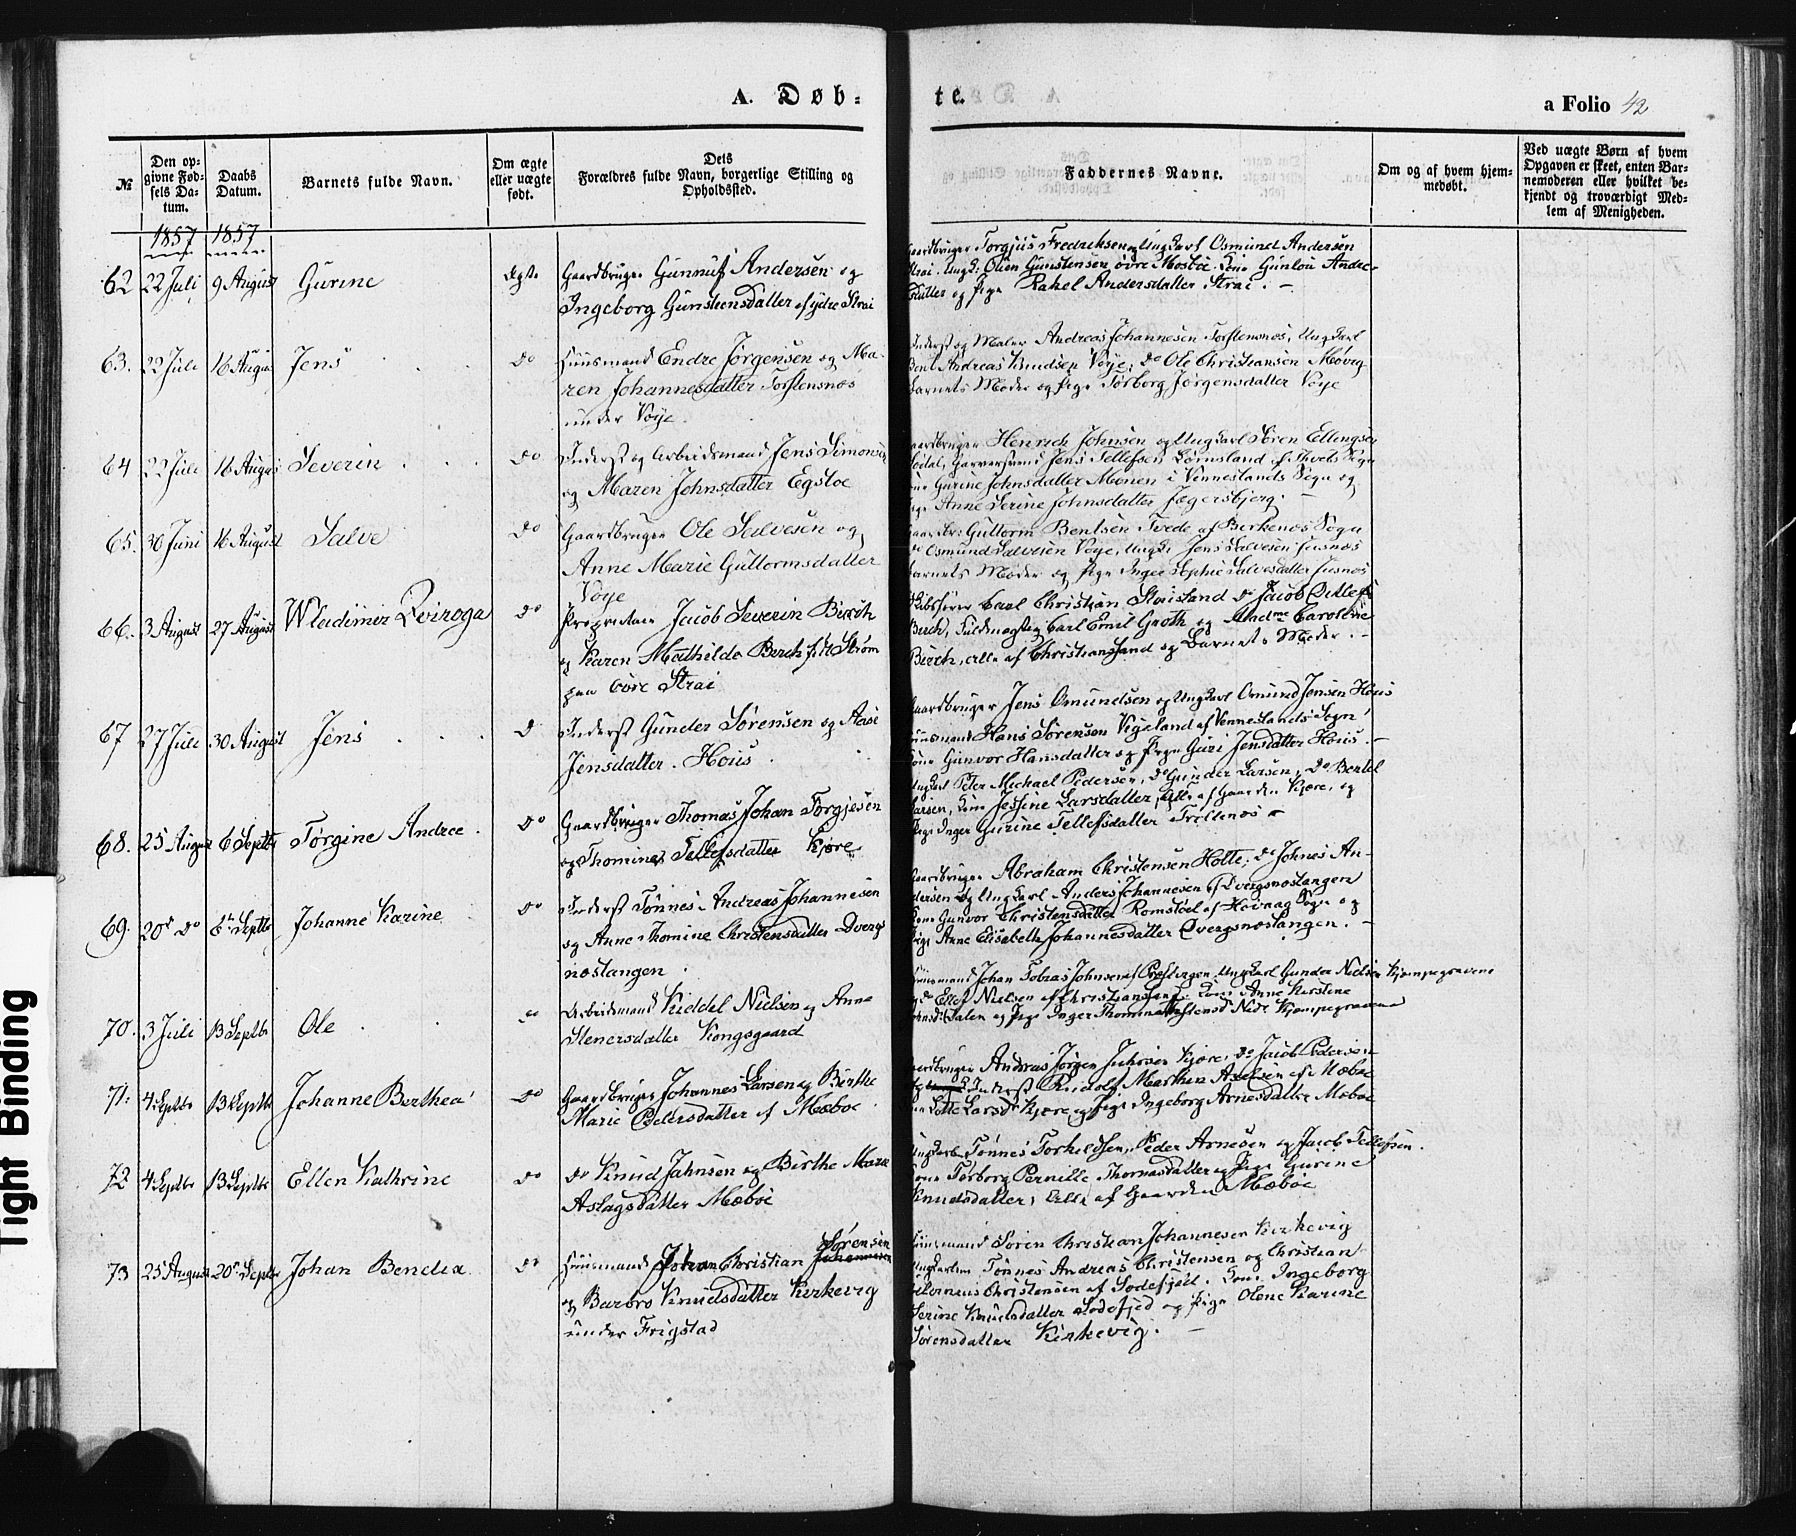 A. Døb-
te.
a Folio 42
№
Den opgivne Fødsels Datum.
Daabs Datum.
Barnets fulde Navn.
Om ægte eller uægte født.
Dets Forældres fulde Navn, borgerlige Stilling og Opholdssted.
Faddernes Navne.
Om og af hvem hjemmedøbt.
Ved uægte Børn af hvem Opgaven er skeet, enten Barnemoderen eller hvilket bekjendt og troværdigt Medlem af Menigheden.
1857 1857
62 22 Juli 9 August Gurine Ægte Gaardbruger Gunnuf Andersen og
Ingeborg Gunstensdatter af ydre Strai
Torgjus Fredriksen og Ungkarl Osmund Andersen
Strai. Ungk: Olien Gunstensen øvre Mosbøe. Kone Gunlou Andersdatter og Pige Rakel Andersdatter Strai. —
63. 22 Juli 16 August Jens Do Huusmand Endre Jørgensen og Ma-
ren Johannesdatter Torstensnøs
under Voije.
Inderst og Maler Andreas Johannesen Torstensnøs, Ungkarl
Bent Andreas Knudsen Voije, Do Ole Christiansen Møvig
Barnets Moder og Pige Torborg Jørgensdatter Voije
64 22 Juli 16 August Severin Do Inderst og Arbeidsmand Jens Simonsen
og Maren Johnsdatter Egsbøe
Gaardbruger Henrich Johnsen og Ungkarl Søren Ellingsen
Jens Tellefsen
Gurine Johnsdatter Monen i Venneslands Sogn og
Pige Anne Serine Johnsdatter Jægersbjerg. —
65. 30 Juni 16 August Salve Do Gaardbruger Ole Salvesen og
Anne Marie Guttormsdatter
Voije
Guttorm Bentsen Tvede af Birkenæs Sogn
Do Osmund Salvesen Voije, Ungk: Jens Salvesen
Barnets Moder og Pige Inger Sophie Salvesdatter
66. 3 August 27 August Wladimir Qviroga Do Proprietair Jacob Severin Birch
og Karen Mathilde Birch født Strøm
paa øvre Strai
Skibsfører Carl Christian Staisland Do Jacob Ditlef
Birch, Fuldmægtig Carl Emil Groth og Madme Caroline
Birch, alle af Christianssand og Barnets Moder. —
67 27 Juli 30 August Jens D Inderst Gunder Sørensen og Aase
Jensdatter. Hous.
Gaardbruger Jens Omundsen og Ungkarl Omund Jensen Hous
Huusmand Hans Sørensen Vigeland af Venneslands Sogn,
Kone Gunvor Hansdatter og Pige Guri Jensdatter Hous. —
68. 25 August 6 Septbr Torgine Andrea Do Gaardbruger Thomas Johan Torgjesen
og Thomine Tellefsdatter Kjøre
Ungkarl Peter Michael Pedersen, Do Gunder Larsen, Do Bertel
Larsen, Kone Jessine Larsdatter, alle af Gaarden Kjøre, og
Pige Inger Gurine Tellefsdatter
69. 20de Do 6te Septbr Johanne Karine Do Inderst Tønnes Andreas Johannesen
og Anne Thomine Christensdatter Dvergs
nøstangen.
Gaardbruger Abraham Christensen Holte, Do Johnes An-
dersen og Ungkarl Anders Johannesen af Dvergsnøstangen
Kone Gunvor Christensdatter Romstøel af Høivaag Sogn og
Pige Anne Elisabeth Johannesdatter Dvergsnøstangen. —
70. 3 Juli 13 Septbr Ole Arbeidsmand Kiddel Nielsen og Anne
Stenersdatter Kongsgaard
Huusmand Johan Tobias Johnsen af Ungkarl Gunder Nielsen Kjempegravene
Do Ellef Nielsen af Christianssand. Kone Anne Kirstine
og Pige Inger Kjempegravene
71. 4 Septbr 13 Septbr Johanne Berthea Do Gaardbruger Johannes Larsen og Birthe
Marie Pedersdatter af Mæbøe.
Gaardbruger Andreas Jørgen Kjøre, Do Jacob Pedersen
Inderst Rudolf Mathias Axelsen af Mæbøe
Lotte Larsdr Kjøre, og Pige Ingeborg Arnesdatter Mæbøe
72 4 Septbr 13 Septbr Ellen Kathrine Do Do Knud Jahnsen og Birthe Marie
Aslagsdatter Mæbøe
Ungkarl Tønnes Torkeldsen, Peder Arnesen og Jacob Tellefsen.
Kone Torborg Pernille Thomasdatter og Pige Gurine
Knudsdatter, Alle af Gaarden Mæbøe
73 25 August 20de Septbr Johan Bendix Do Huusmand Johan Christian Sørensen
og Barbro Knudsdatter Kirkevig
under Frigstad
Huusmand Søren Christian Johannesen Kirkevig
Ungkarlen Tønnes Andreas Christensen og Christian
Christensen af Sodefjed. Kone Ingeborg
Serine Knudsdatter Sodefjed og Pige Olene Karine
Sørensdatter Kirkevig. —
Tight Binding